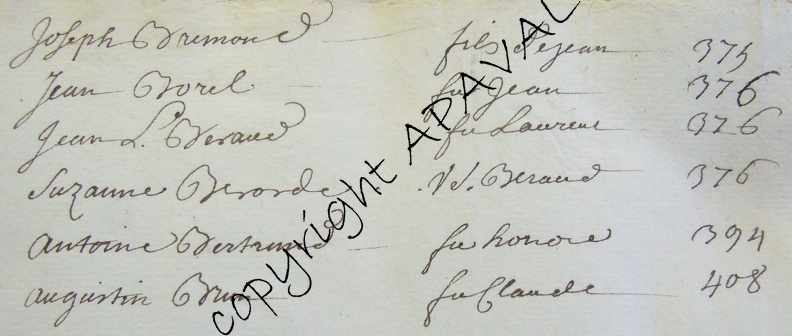 Joseph Bremond fils de Jean 375
Jean Borel fu Jean 376
Jean L. Beraud fu Laurent 376
Suzanne Berarde Vd. Beraud 376
Antoine Bertrand fu honoré 394
augustin Brun fu Claude 408
copyright APAVAL